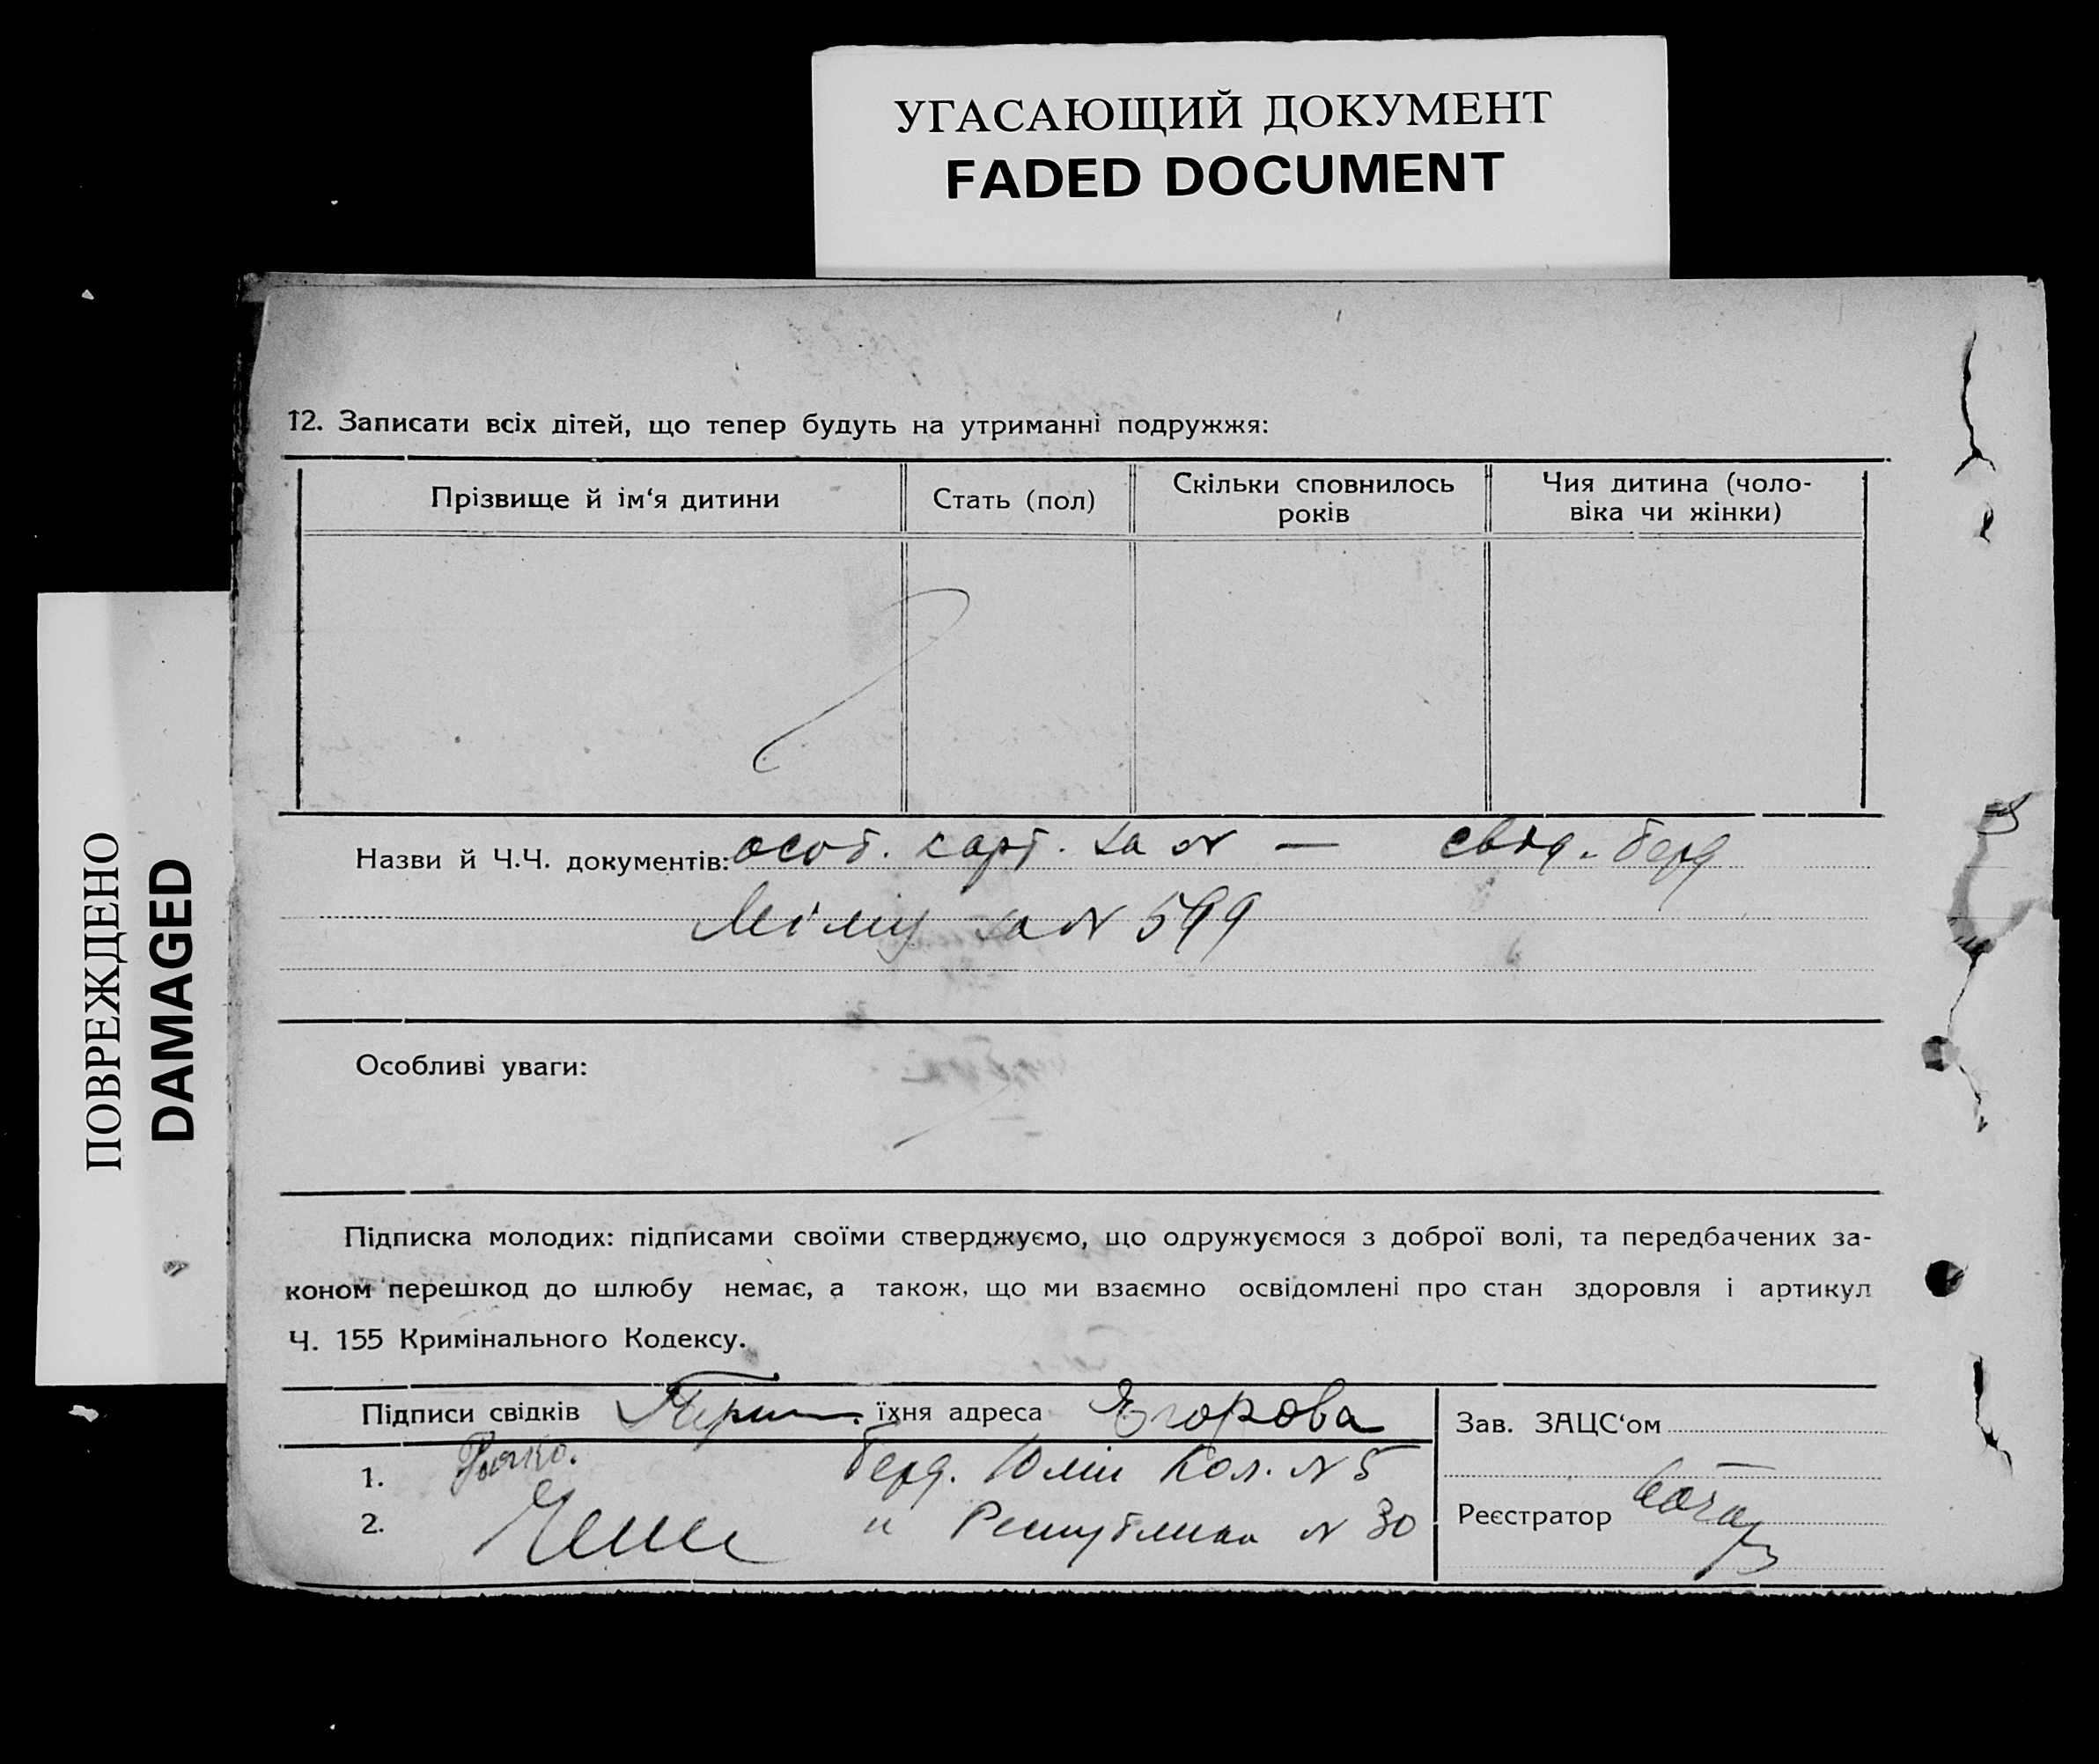 УГАСАЮЩИЙ ДОКУМЕНТ
FADED DOCUMENT
ПОВРЕЖДЕНО
DAMAGED
12. Записати всіх дітей, що тепер будуть на утриманні подружжя:
Прізвище й ім‘я дитини
Стать (пол)
Скільки сповнилось
років
Чия дитина (чоло-
віка чи жінки)
Назви й Ч.Ч. документів: особ. карт. за № — свид. берд
за № 599
Особливі уваги:
Підписка молодих: підписами своїми стверджуємо, що одружуємося з доброї волі, та передбачених за-
коном перешкод до шлюбу немає, а також, що ми взаємно освідомлені про стан здоровля і артикул
Ч. 155 Кримінального Кодексу.
Підписи свідків їхня адреса Єгорова
1. берд. Кол. № 5
2. " Республики № 30
Зав. ЗАЦС‘ом
Реєстратор